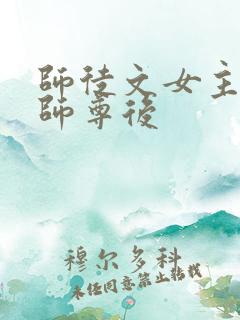 師徒文女主
師尊後
穆尔多科
未经同意禁止转载